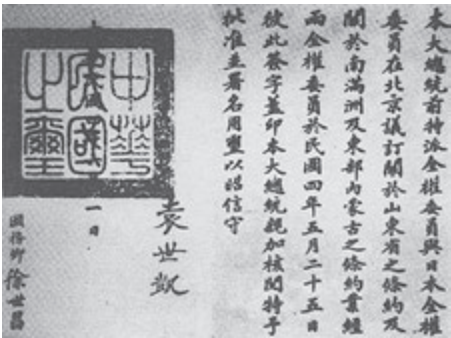 本大總統前特派全權委員與日本全權
委員在北京議訂關於山東省之條約及
關於南滿洲及東部內蒙古之條約業經
兩全權委員於民國四年五月二十五日
彼此簽字蓋印本大總統親加核閱特予
批准並署名用璽以昭信守
袁世凱
一日
中華民國之璽
國務卿徐世昌